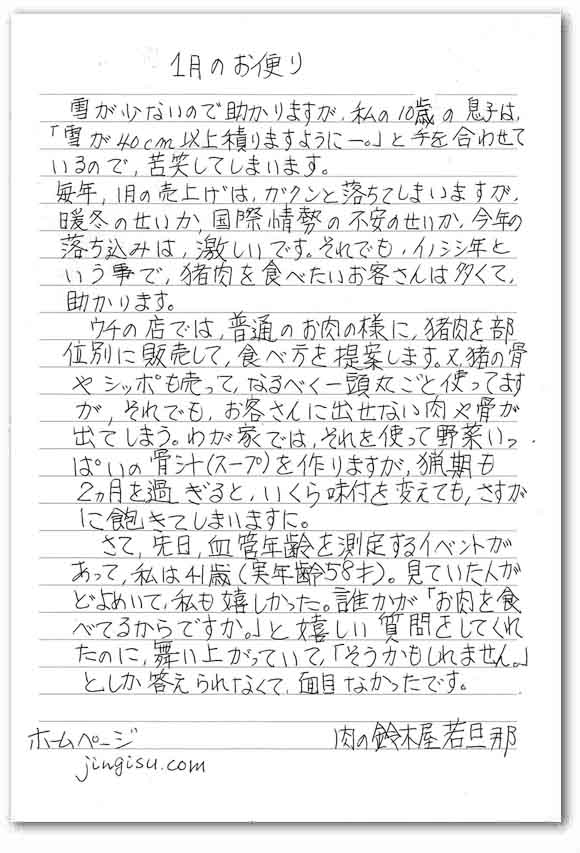 1月のお便り
雪が少ないので助かりますが、私の10歳の息子は、
「雪が40cm以上積りますようにー。」と手を合わせて
いるので、苦笑してしまいます。
毎年、1月の売上げは、ガクンと落ちてしまいますが、
暖冬のせいか、国際情勢の不安のせいか、今年の
落ち込みは、激しいです。それでも、イノシシ年と
いう事で、猪肉を食べたいお客さんは多くて、
助かります。
ウチの店では、普通のお肉の様に、猪肉を部
位別に販売して、食べ方を提案します。又、猪の骨
や シッポも売って、なるべく一頭丸ごと使ってます
が、それでも、お客さんに出せない肉や骨が
出てしまう。わが家では、それを使って野菜いっ
ぱいの骨汁(スープ)を作りますが、猟期も
2ヵ月を過ぎると、いくら味付を変えても、さすが
に飽きてしまいますに。
さて、先日、血管年齢を測定するイベントが
あって、私は41歳(実年齢58才)。見ていた人が
どよめいて、私も嬉しかった。誰かが「お肉を食
べてるからですか。」と嬉しい質問をしてくれ
たのに、舞い上がっていて、「そうかもしれません。」
としか答えられなくて、面目なかったです。
ホームページ 肉の鈴木屋 若旦那
jingisu.com